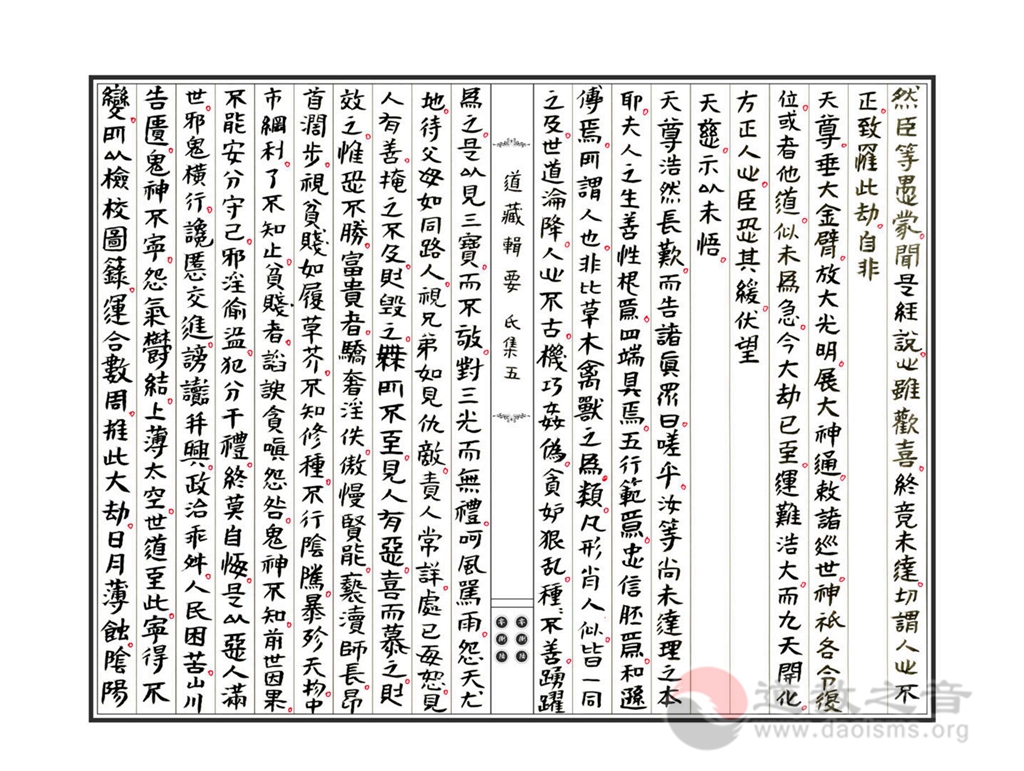 然臣等愚蒙聞是經說心雖歡喜終竟未達切謂人心不
正致罹此劫自非
天尊垂大金臂放大光明展大神通敕諸巡世神祇各令復
位或者他道似未爲急今大劫已至運難浩大而九天開化
方正人心臣恐其緩伏望
天慈示以未悟
天尊浩然長歎而告諸眞眾曰嗟乎汝等尚未達理之本
耶夫人之生善性根焉四端具焉五行範焉忠信胚焉和遜
傅焉所謂人也非比草木禽獸之爲類凡形肖人似皆一同
之及世道淪降人心不古機巧姦偽貪妒狠亂種種不善踴躍
爲之是以見三寶而不敬對三光而無禮呵風罵雨怨天尤
地待父母如同路人視兄弟如見仇敵責人常詳處已每恕見
人有善掩之不及則毀之弊所不至見人有惡喜而慕之則
效之惟恐不勝富貴者驕奢淫佚傲慢賢能褻瀆師長昂
首濶步視貧賤如履草芥不知修種不行陰騭暴殄天物中
市網利了不知止貧賤者謟諛貪嗔怨咎鬼神不知前世因果
不能安分守己邪淫偷盜犯分干禮終莫自悔是以惡人滿
世邪鬼橫行讒慝交進謗讟并興政治乖舛人民困苦山川
告匱鬼神不寧怨氣鬱結上薄太空世道至此寧得不
變所以檢校圖籙運合數周推此大劫日月薄蝕陰陽
道藏輯要 氐集五
道教之音
www.daoisms.org